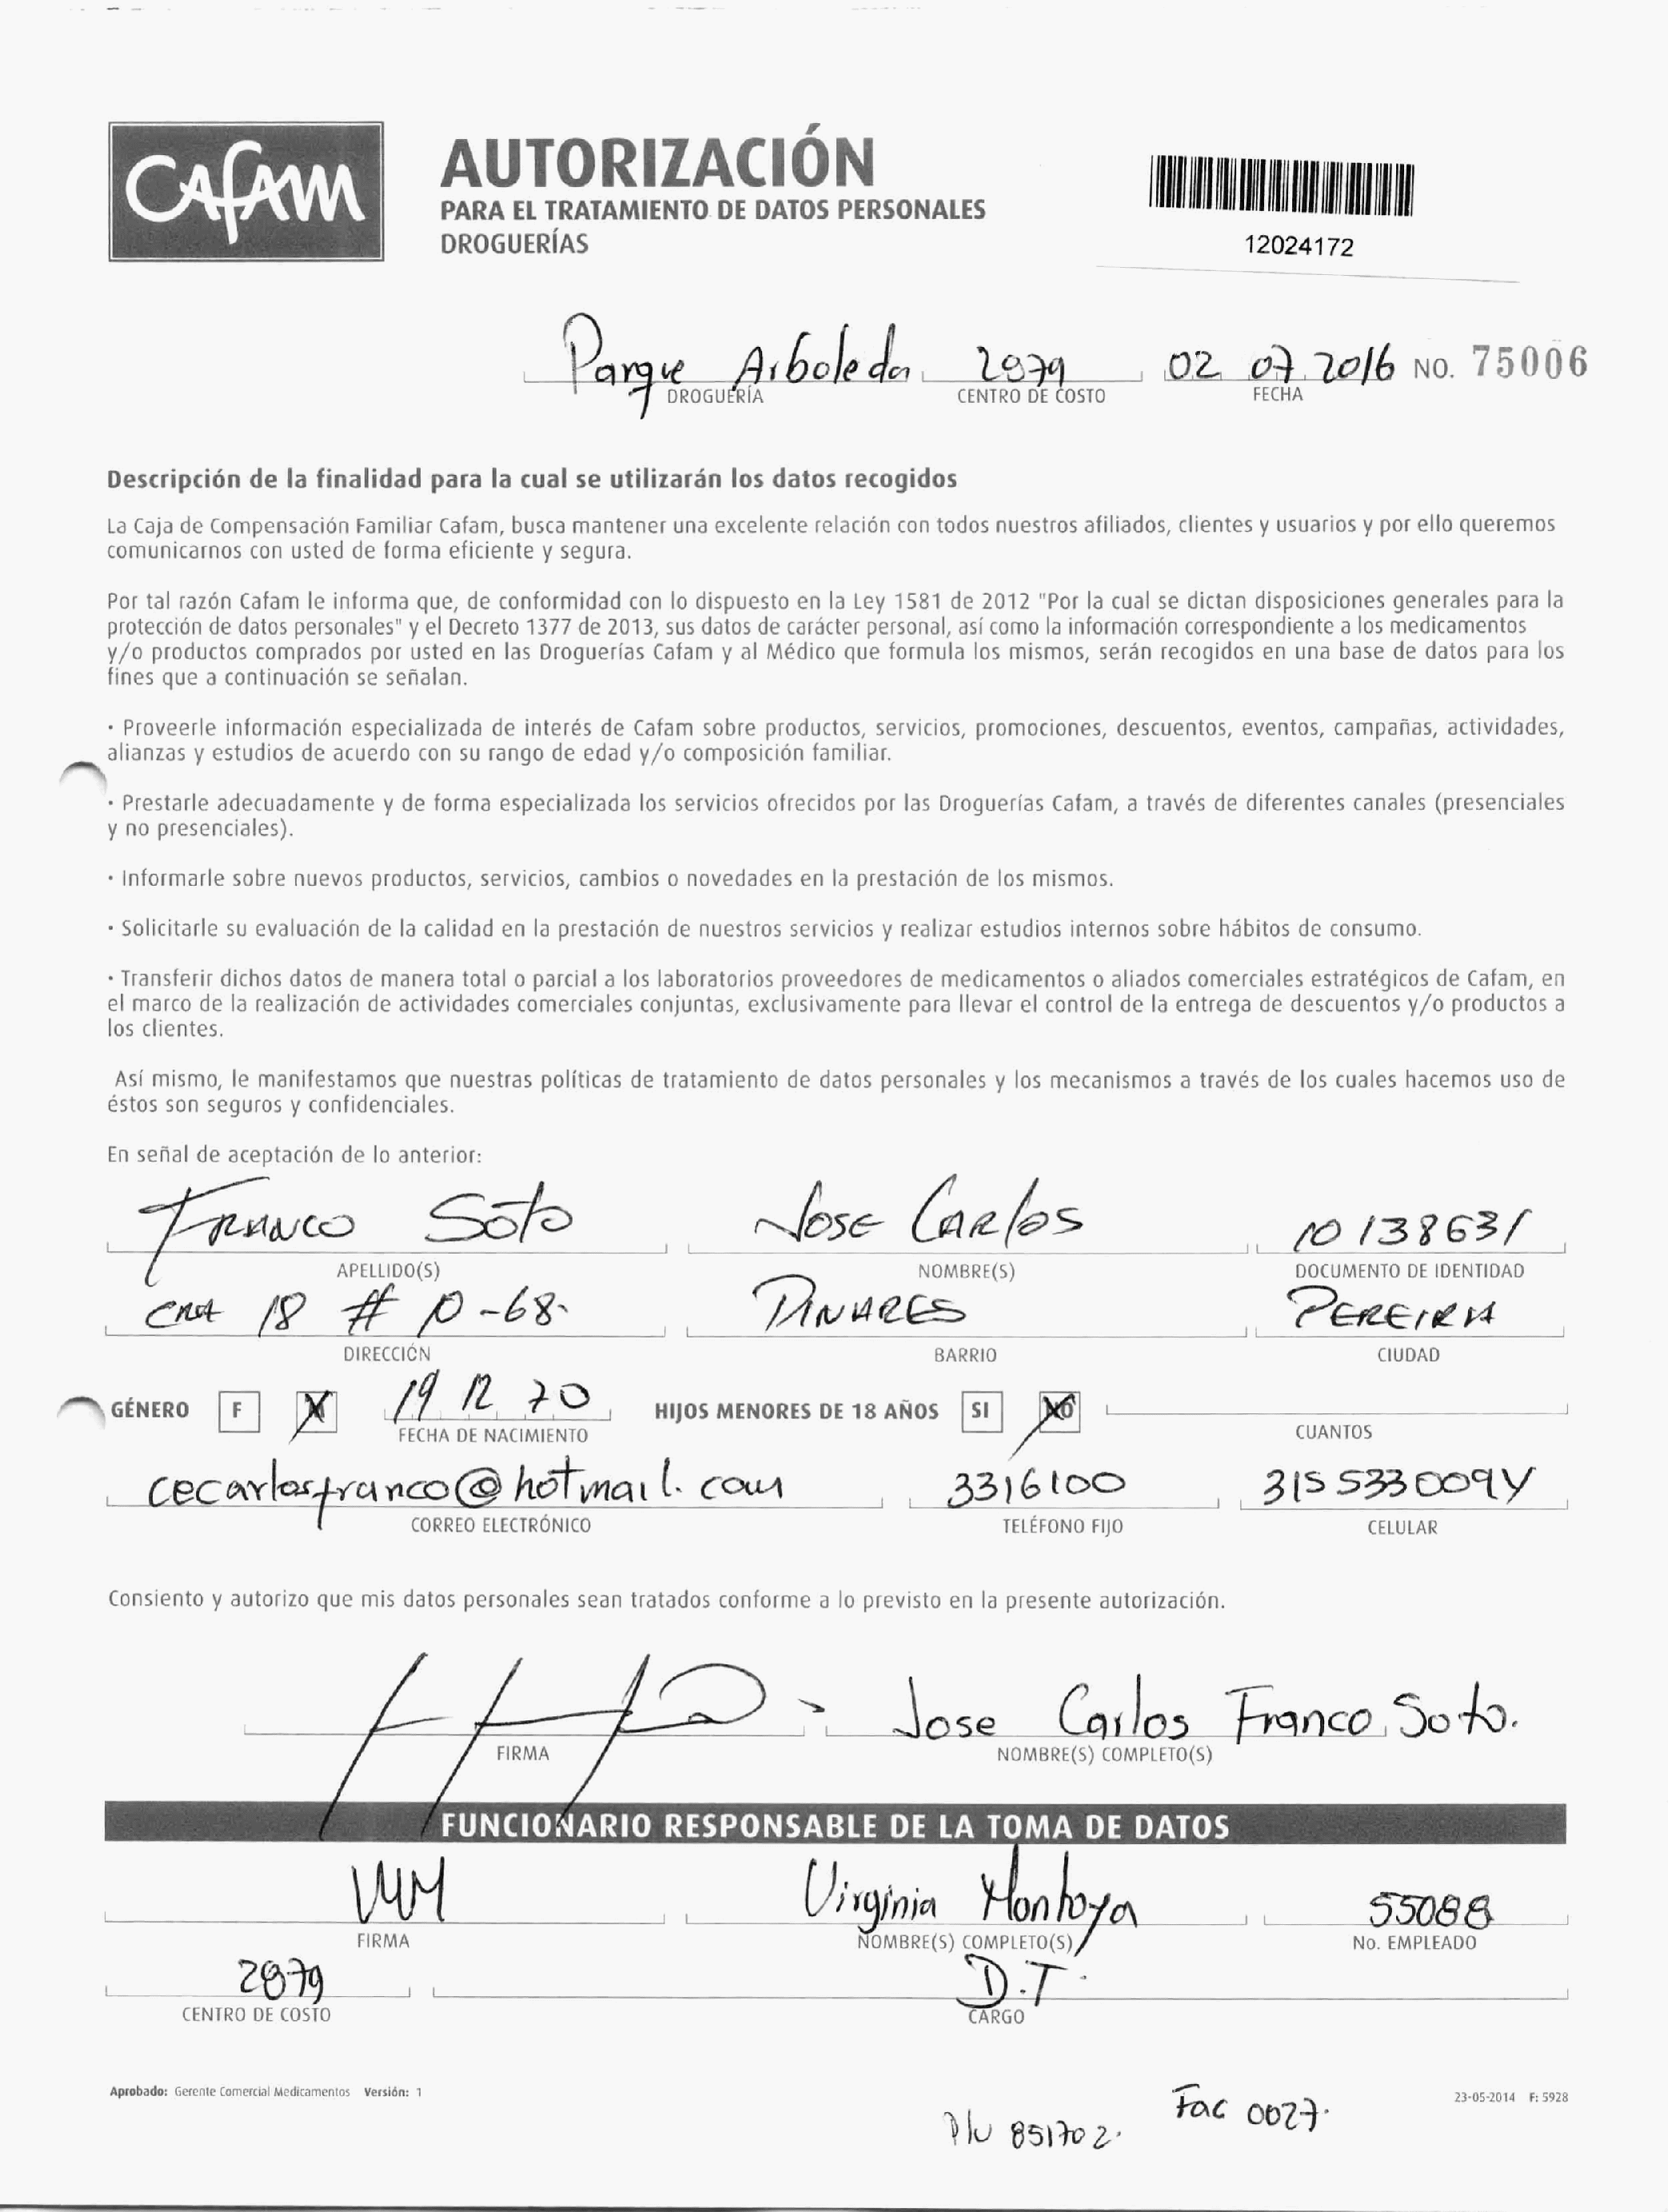 CAFAM
AUTORIZACIÓN
PARA EL TRATAMIENTO DE DATOS PERSONALES
DROGUERÍAS
12024172
Parque Arboleda 2879 02 07 2016 NO. 75006
DROGUERÍA CENTRO DE COSTO FECHA
Descripción de la finalidad para la cual se utilizarán los datos recogidos
La Caja de Compensación Familiar Cafam, busca mantener una excelente relación con todos nuestros afiliados, clientes y usuarios y por ello queremos
comunicarnos con usted de forma eficiente y segura.
Por tal razón Cafam le informa que, de conformidad con lo dispuesto en la Ley 1581 de 2012 "Por la cual se dictan disposiciones generales para la
protección de datos personales" y el Decreto 1377 de 2013, sus datos de carácter personal, así como la información correspondiente a los medicamentos
y/o productos comprados por usted en las Droguerías Cafam y al Médico que formula los mismos, serán recogidos en una base de datos para los
fines que a continuación se señalan.
· Proveerle información especializada de interés de Cafam sobre productos, servicios, promociones, descuentos, eventos, campañas, actividades,
alianzas y estudios de acuerdo con su rango de edad y/o composición familiar.
· Prestarle adecuadamente y de forma especializada los servicios ofrecidos por las Droguerías Cafam, a través de diferentes canales (presenciales
y no presenciales).
· Informarle sobre nuevos productos, servicios, cambios o novedades en la prestación de los mismos.
· Solicitarle su evaluación de la calidad en la prestación de nuestros servicios y realizar estudios internos sobre hábitos de consumo.
· Transferir dichos datos de manera total o parcial a los laboratorios proveedores de medicamentos o aliados comerciales estratégicos de Cafam, en
el marco de la realización de actividades comerciales conjuntas, exclusivamente para llevar el control de la entrega de descuentos y/o productos a
los clientes.
Así mismo, le manifestamos que nuestras políticas de tratamiento de datos personales y los mecanismos a través de los cuales hacemos uso de
éstos son seguros y confidenciales.
En señal de aceptación de lo anterior:
FRANCO SOTO JOSE CARLOS 10138631
APELLIDO(S) NOMBRE(S) DOCUMENTO DE IDENTIDAD
CRA 18 # 10-68. PINARES PEREIRA
DIRECCIÓN BARRIO CIUDAD
GÉNERO F M 19 12 70 HIJOS MENORES DE 18 AÑOS SI NO
FECHA DE NACIMIENTO CUANTOS
cecarlosfranco@hotmail.com 3316100 315 533 0094
CORREO ELECTRÓNICO TELÉFONO FIJO CELULAR
Consiento y autorizo que mis datos personales sean tratados conforme a lo previsto en la presente autorización.
Jose Carlos Franco Soto.
FIRMA NOMBRE(S) COMPLETO(S)
FUNCIONARIO RESPONSABLE DE LA TOMA DE DATOS
VM Virginia Montoya 55088
FIRMA NOMBRE(S) COMPLETO(S) No. EMPLEADO
2879 D.T.
CENTRO DE COSTO CARGO
Aprobado: Gerente Comercial Medicamentos Versión: 1 23-05-2014 F: 5928
Plu 851702. Fac 0027.